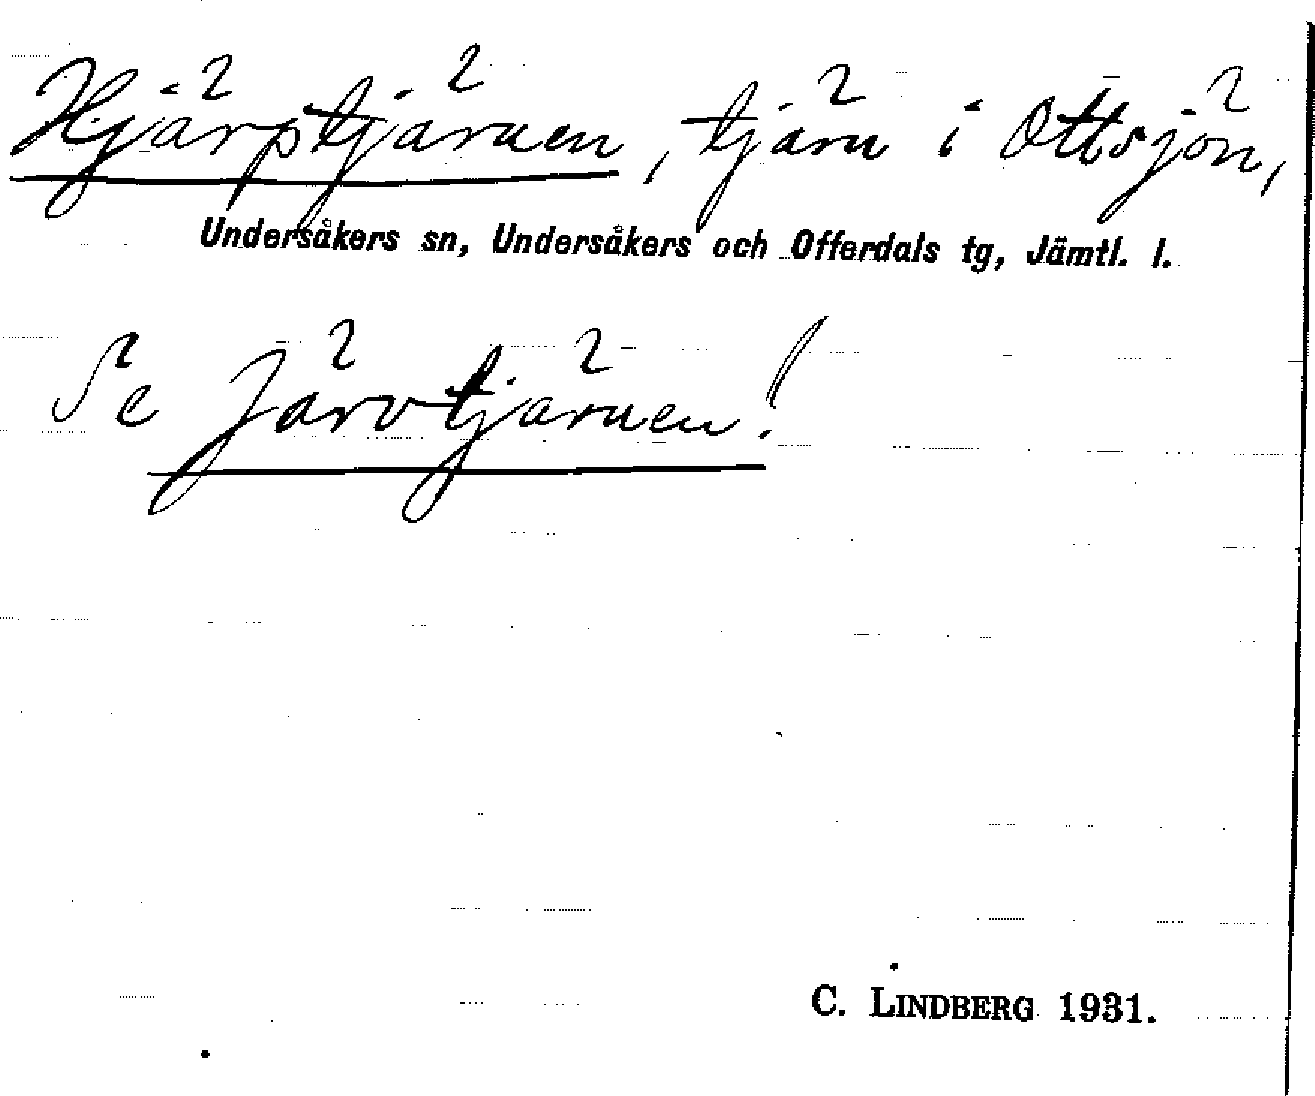 Hjärptjärnen, tjärn i Ottsjön,
Undersåkers sn, Undersåkers och Offerdals tg, Jämtl. l.
Se Järvtjärnen!
C. LINDBERG 1931.